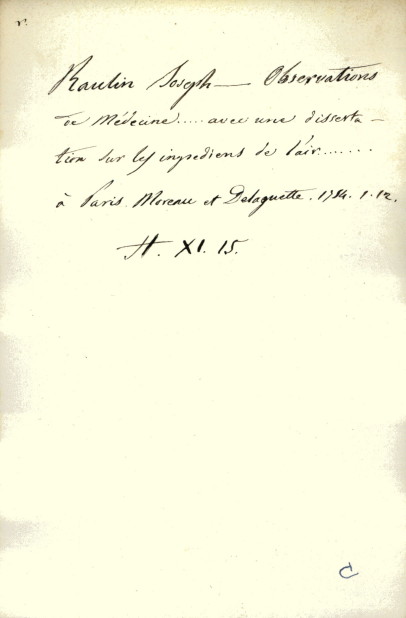 Raulin Joseph — Observations
de Médecine..... avec une disserta-
tion sur les ingrediens de l'air.......
à Paris Moreau et Delaguette. 1754. 1. 12.
H. XI. 15.
C